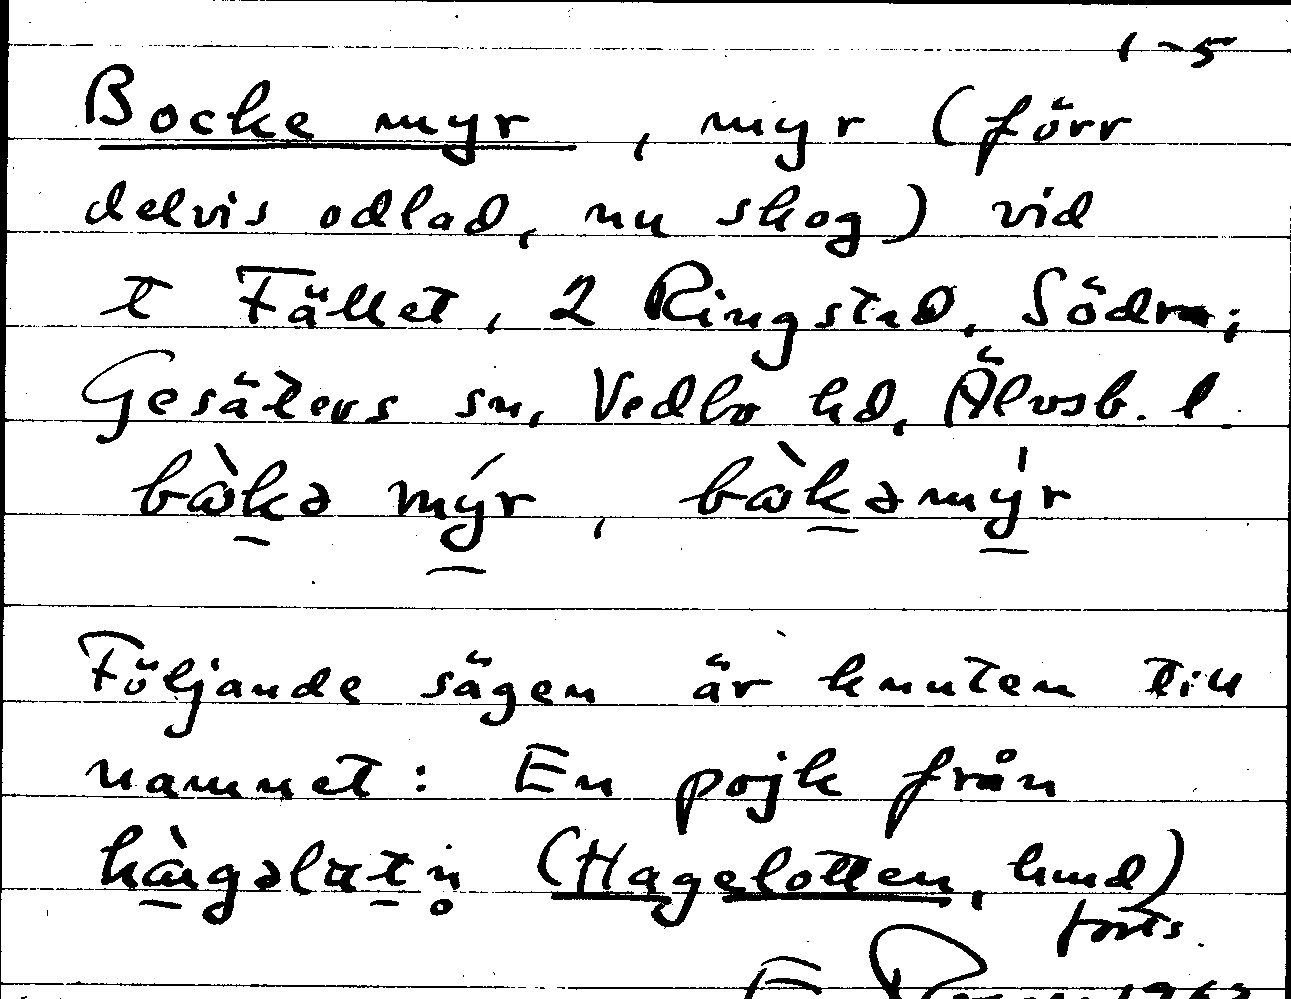 1-5
Bocke myr, myr (förr
delvis odlad, nu skog) vid
t Fället, 2 Ringstad, Södra;
Gesäters sn, Vedbo hd, Älvsb. l.
bɷ̀kə mýr, bɷ̀kəmy̍r
Följande sägen är knuten till
namnet: En pojk från
(Hagelotten, hmd)
forts.